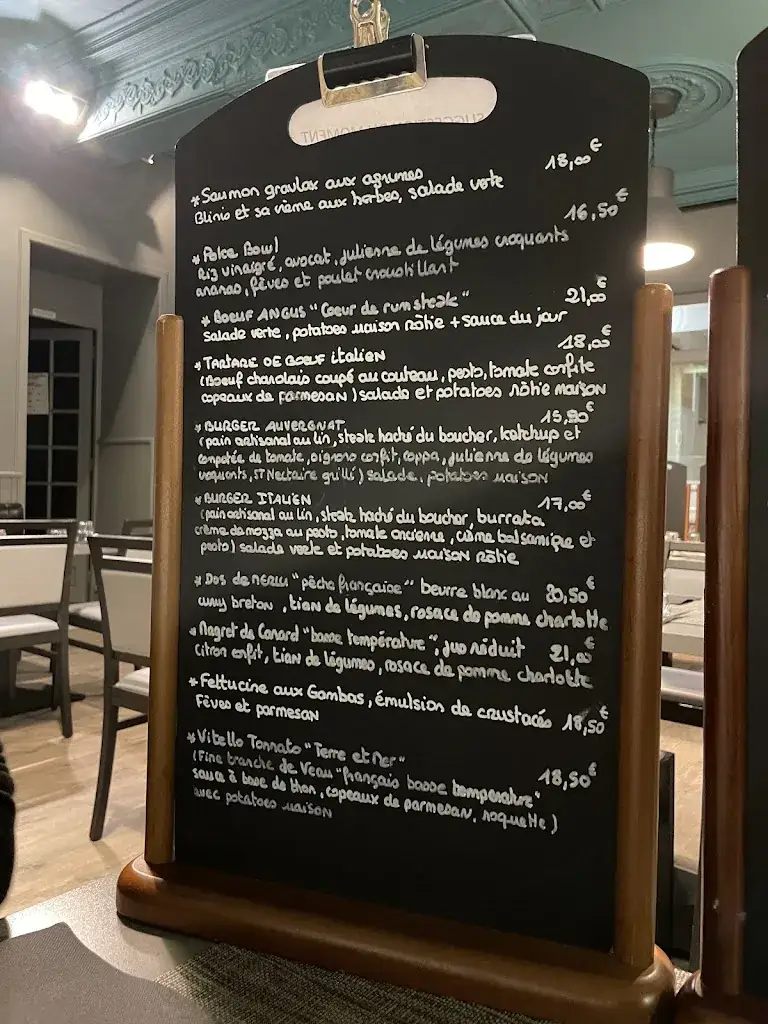 SUGGESTIONS DU MOMENT
* Saumon gravlax aux agrumes 18,00€
Blinis et sa crème aux herbes, salade verte
* Poke Bowl 16,50€
Riz vinaigré, avocat, julienne de légumes croquants
ananas, fèves et poulet croustillant
* BOEUF ANGUS "Coeur de rumsteak" 21,00€
salade verte, potatoes maison rôtie + sauce du jour
* TARTARE DE BOEUF italien 18,00€
(Boeuf charolais coupé au couteau, pesto, tomate confite
copeaux de parmesan) salade et potatoes rôtie maison
* BURGER AUVERGNAT 15,90€
(pain artisanal au lin, steak haché du boucher, ketchup et
compotée de tomate, oignons confit, coppa, julienne de légumes
croquants, ST Nectaire grillé) salade, potatoes maison
* BURGER ITALIEN 17,00€
(pain artisanal au lin, steak haché du boucher, burrata
crème de mozza au pesto, tomate ancienne, crème balsamique et
pesto) salade verte et potatoes maison rôtie
* Dos de merlu "pêche française" beurre blanc au 20,50€
curry breton, tian de légumes, rosace de pomme charlotte
* Magret de Canard "basse température", jus réduit 21,00€
citron confit, tian de légumes, rosace de pomme charlotte
* Fettucine aux Gambas, émulsion de crustacés 18,50€
Fèves et parmesan
* Vitello Tonnato "Terre et Mer"
(Fine tranche de Veau "français basse température" 18,50€
sauce à base de thon, copeaux de parmesan, roquette)
avec potatoes maison